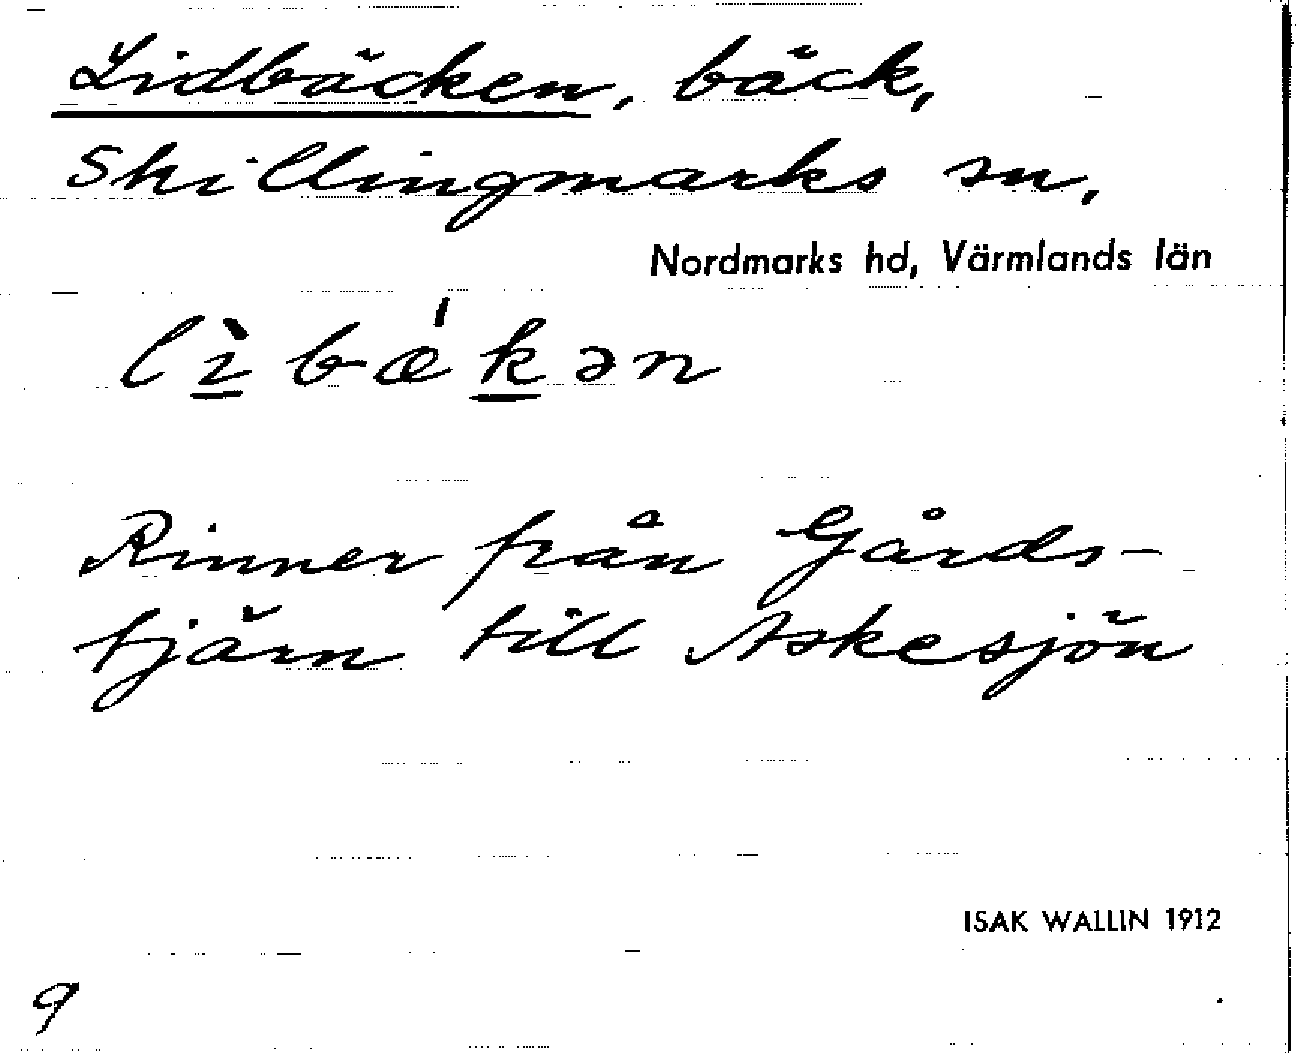 Lidbäcken, bäck,
Skillingmarks sn,
Nordmarks hd, Värmlands län
lìbǽkən
Rinner från Gårds-
tjärn till Askesjön
ISAK WALLIN 1912
9